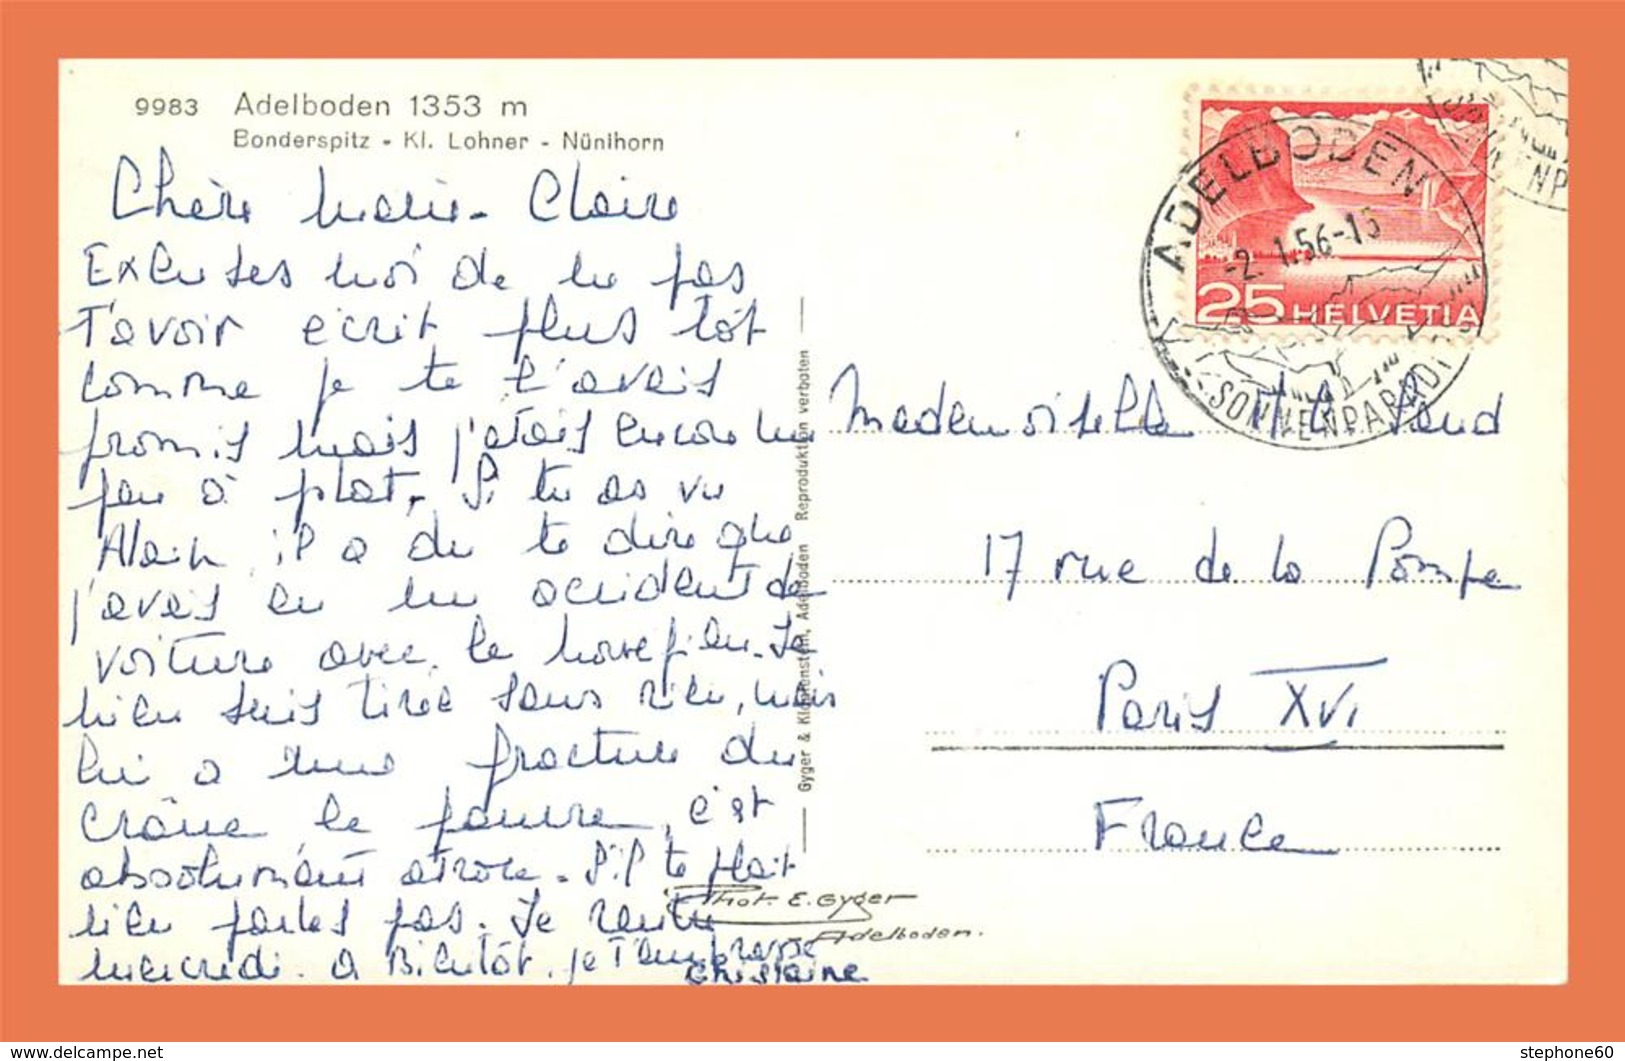 9983 Adelboden 1353 m
Bonderspitz - Kl. Lohner - Nünihorn
Chère Marie-Claire
Excuses moi de ne pas
t'avoir écrit plus tôt
comme je te l'avais
promis mais j'étais encore un
peu à plat. Si tu as vu
Alain il a du te dire que
j'avais eu un accident de
voiture avec. Je
m'en suis tirée sans rien, mais
lui a une fracture du
crâne le pauvre, c'est
absolument atroce. S'il te plait
n'en parles pas. Je rentre
mercredi. a Bientôt. je t'embrasse
Ghislaine
Gyger & Klopfenstein, Adelboden Reproduktion verboten
Phot. E. Gyger
Adelboden.
ADELBODEN
-2. 1.56-15
SONNENPARADIES
25 HELVETIA
Mademoiselle
17 rue de la Pompe
Paris XVI
France
stephone60